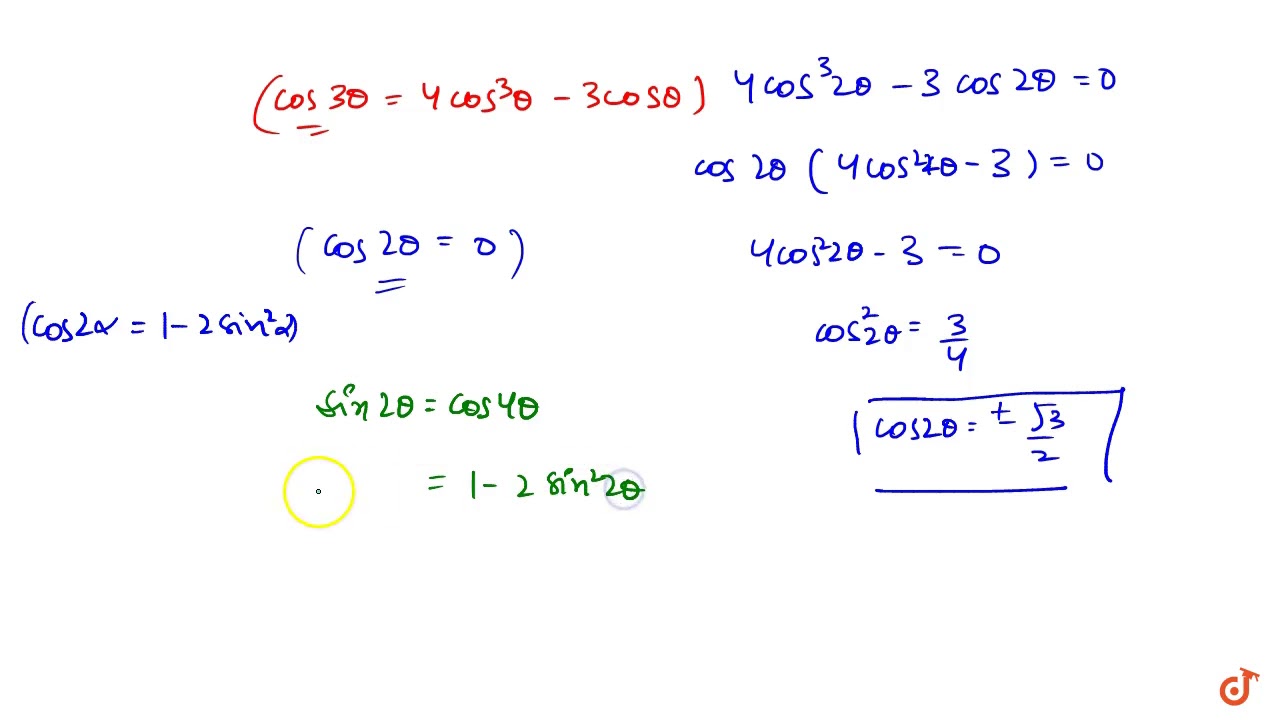 (cos 3θ = 4cos³θ - 3cosθ)
4cos³2θ - 3 cos 2θ = 0
cos 2θ (4cos²2θ - 3) = 0
(cos 2θ = 0)
4cos²2θ - 3 = 0
(cos2α = 1 - 2 sin²α)
cos²2θ = 3/4
sin 2θ = cos4θ
cos2θ = ± √3/2
= 1 - 2 sin²2θ